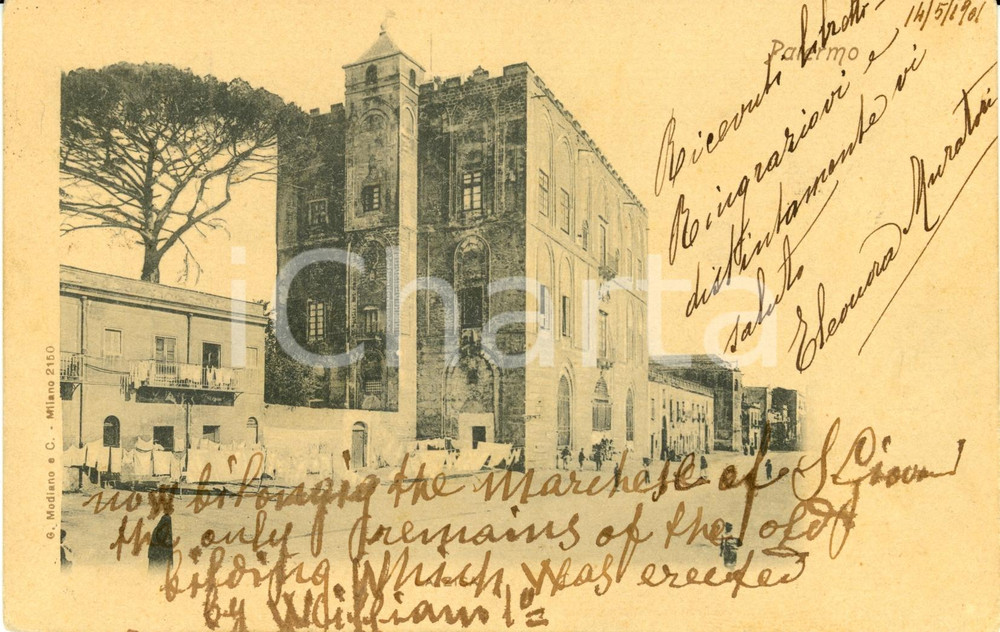 14/5/1901
Palermo
Ricevuto libretto
Ringraziovi e
distintamente vi
saluto
Eleonora Muratori
iCharta
G. Modiano e C. - Milano 2150
now bilonging the Marchese of S Giovanni
the only remains of the old
bilding which was erected
by William I°